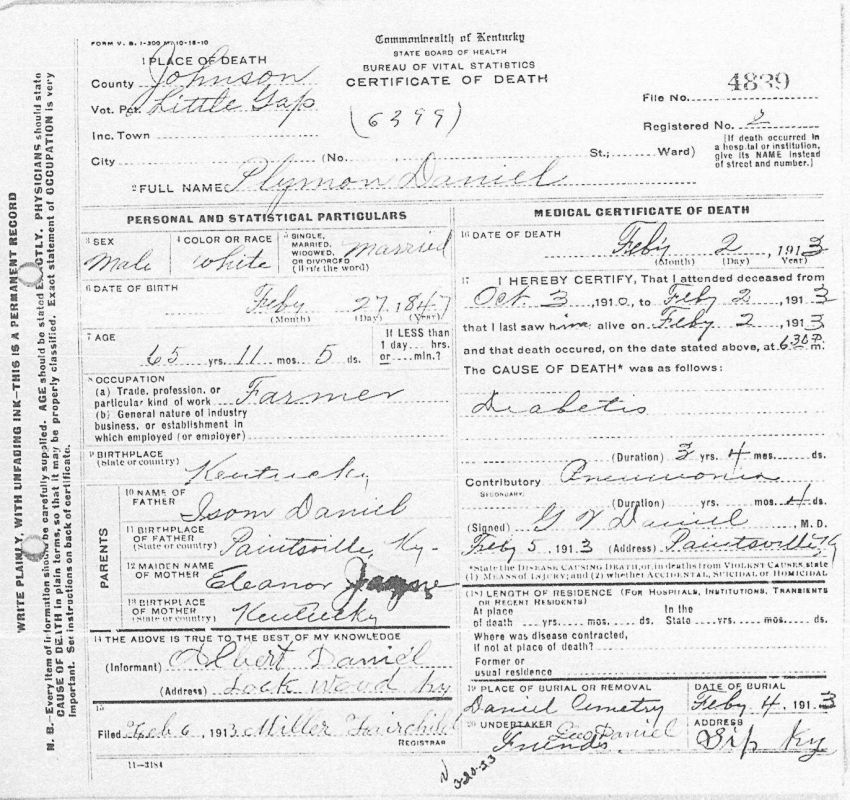 FORM V. S. 1-300 M 10-18-10
Commonwealth of Kentucky
STATE BOARD OF HEALTH
BUREAU OF VITAL STATISTICS
CERTIFICATE OF DEATH
1 PLACE OF DEATH
County Johnson
Vot. Pct. Little Gap
Inc. Town
City (No. St.; Ward)
(6399)
File No. 4839
Registered No. 2
[If death occurred in
a hospital or institution,
give its NAME instead
of street and number.]
2 FULL NAME Plymon Daniel
PERSONAL AND STATISTICAL PARTICULARS
3 SEX
Male
4 COLOR OR RACE
White
5 SINGLE,
MARRIED,
WIDOWED,
OR DIVORCED
(Write the word)
Married
6 DATE OF BIRTH
Feby 27 1847
(Month) (Day) (Year)
7 AGE
65 yrs. 11 mos. 5 ds.
If LESS than
1 day hrs.
or min.?
8 OCCUPATION
(a) Trade, profession, or
particular kind of work Farmer
(b) General nature of industry
business, or establishment in
which employed (or employer)
9 BIRTHPLACE
(State or country)
Kentucky
PARENTS
10 NAME OF
FATHER
Isom Daniel
11 BIRTHPLACE
OF FATHER
(State or country)
Paintsville, Ky-
12 MAIDEN NAME
OF MOTHER
Eleanor Jayne
13 BIRTHPLACE
OF MOTHER
(State or country)
Kentucky
14 THE ABOVE IS TRUE TO THE BEST OF MY KNOWLEDGE
(Informant) Albert Daniel
(Address) Lock Wood Ky
15
Filed Feb 6, 1913 Miller Fairchild
REGISTRAR
11-3184
MEDICAL CERTIFICATE OF DEATH
16 DATE OF DEATH
Feby 2, 1913
(Month) (Day) (Year)
17 I HEREBY CERTIFY, That I attended deceased from
Oct. 3, 1910, to Feby 2, 1913
that I last saw him alive on Feby 2, 1913
and that death occured, on the date stated above, at 6.30 P. m.
The CAUSE OF DEATH* was as follows:
Deabetis
(Duration) 3 yrs. 4 mos. ds.
Contributory Pneumonia
SECONDARY
(Duration) yrs. mos. 4 ds.
(Signed) G V Daniel M. D.
Feby 5, 1913 (Address) Paintsville, Ky
*State the DISEASE CAUSING DEATH, or, in deaths from VIOLENT CAUSES, state
(1) MEANS OF INJURY; and (2) whether ACCIDENTAL, SUICIDAL OR HOMICIDAL
(18) LENGTH OF RESIDENCE (FOR HOSPITALS, INSTITUTIONS, TRANSIENTS
OR RECENT RESIDENTS)
At place In the
of death yrs. mos. ds. State yrs. mos. ds.
Where was disease contracted,
if not at place of death?
Former or
usual residence
19 PLACE OF BURIAL OR REMOVAL
Daniel Cemetry
DATE OF BURIAL
Feby 4, 1913
20 UNDERTAKER
Geo Daniel
Friends
ADDRESS
Sip Ky
WRITE PLAINLY, WITH UNFADING INK—THIS IS A PERMANENT RECORD
N. B.—Every item of information should be carefully supplied. AGE should be stated EXACTLY. PHYSICIANS should state
CAUSE OF DEATH in plain terms, so that it may be properly classified. Exact statement of OCCUPATION is very
important. See instructions on back of certificate.